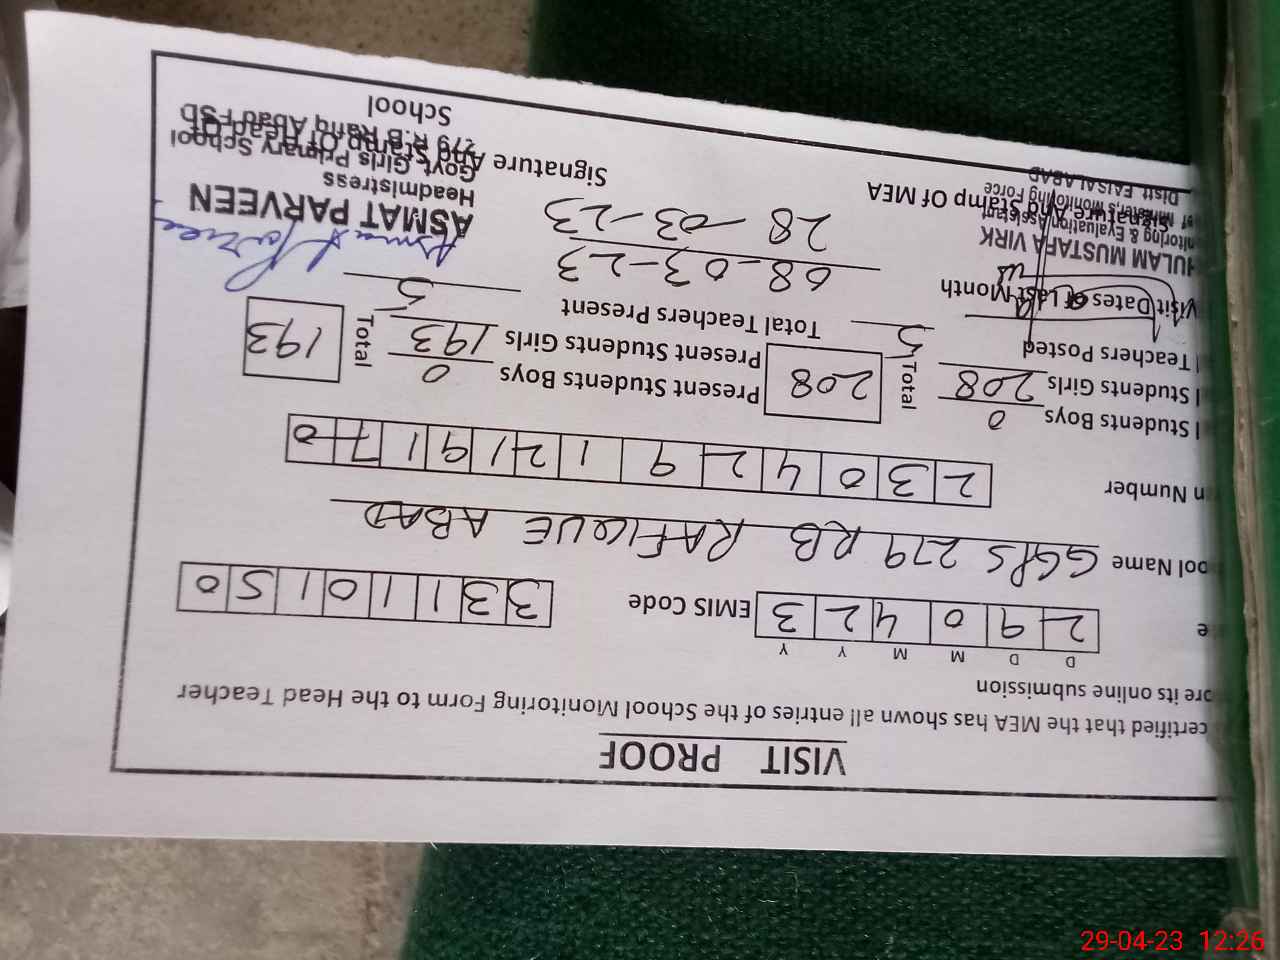 VISIT PROOF
certified that the MEA has shown all entries of the School Monitoring Form to the Head Teacher
ore its online submission
D D M M Y Y
290423 EMIS Code 33110150
ool Name GGPS 279 RB RAFIQUE ABAD
n Number 2304291219170
l Students Boys 0
l Students Girls 208
Total 208
Present Students Boys 0
Present Students Girls 193
Total 193
l Teachers Posted 5
Total Teachers Present 5
Visit Dates of Last Month 08-03-23
28-03-23
HULAM MUSTAFA VIRK
nitoring & Evaluation Assistant
Signature And Stamp Of MEA
Monitoring Force
Distt. FAISALABAD
Asmat Parveen
ASMAT PARVEEN
Headmistress
Govt. Girls Primary School
279 R.B Rafiq Abad FSD
Signature And Stamp Of Head Of
School
29-04-23 12:26